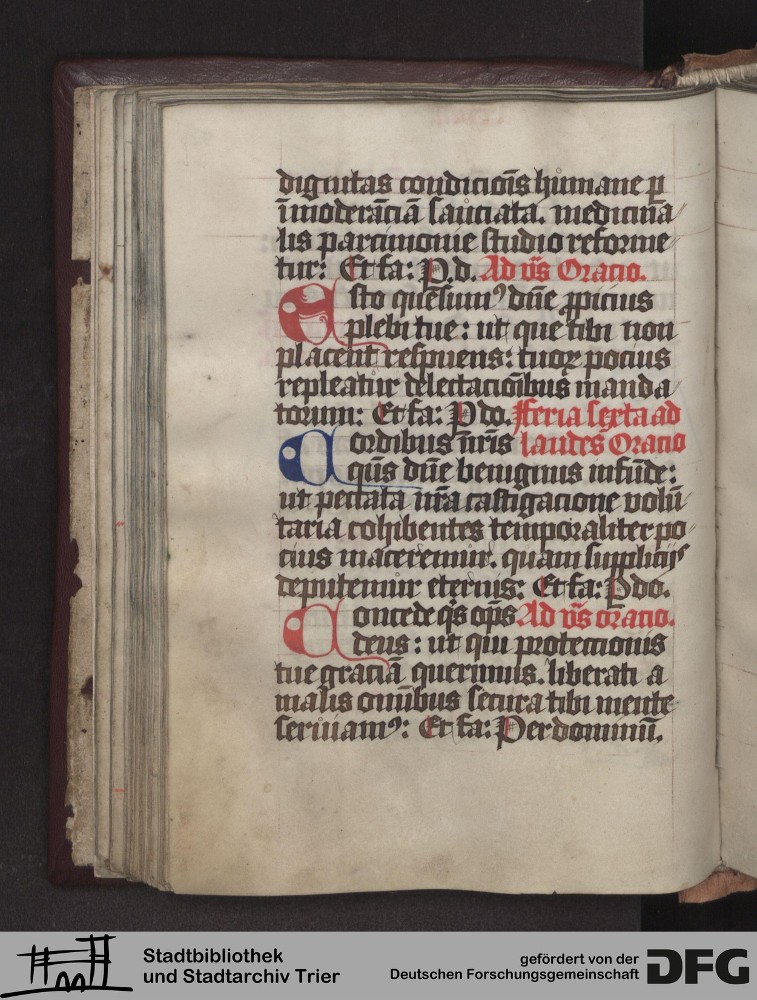 dignitas condicioīs humane ꝑ
īmoderāciā sauciata. medicina
lis parcimonie studio reforme
tur: Et fa: P.d. Ad v̄s Oracio.
Esto quesumꝰ dn̄e ꝓpicius
plebi tue: ut que tibi non
placent respuens: tuoꝝ pocius
repleatur delectacioībus manda
torum: Et fa: P do. fferia sexta ad
Cordibus nr̄is laudes Oracio
qs̄ dn̄e benignus infūde:
ut peccata nr̄a castigacione volū
taria cohibentes temporaliter po
cius maceremur. quam supplicijs
deputemur eternis: Et fa: P do.
Concede qs̄ op̄s Ad v̄s oracio.
deus: ut qui protectionis
tue graciā querimus. liberati a
malis om̄ibus secura tibi mente
seruiamꝰ: Et fa: Per dominū.
Stadtbibliothek
und Stadtarchiv Trier
gefördert von der
Deutschen Forschungsgemeinschaft
DFG